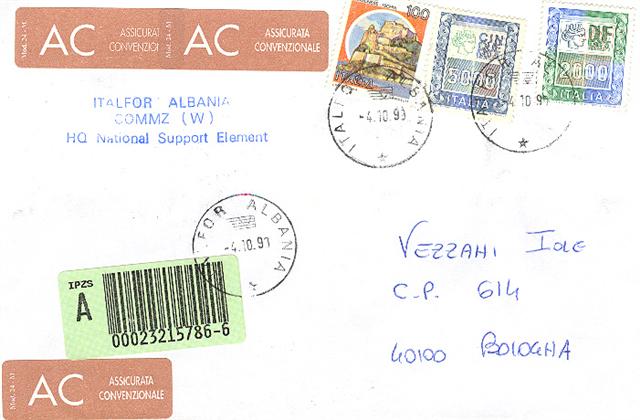 Mod. 24 - M
AC
ASSICURATA
CONVENZIONALE
Mod. 24 - M
AC
ASSICURATA
CONVENZIONALE
100
ITALIA
5000
ITALIA
2000
ITALIA
ITALFOR ALBANIA
COMMZ (W)
HQ National Support Element
ALBANIA
-4.10.99
4 10.99
ALBANIA
-4.10.99
VEZZANI IOLE
C.P. 614
40100 BOLOGNA
IPZS
A
00023215786-6
Mod. 24 - M
AC
ASSICURATA
CONVENZIONALE